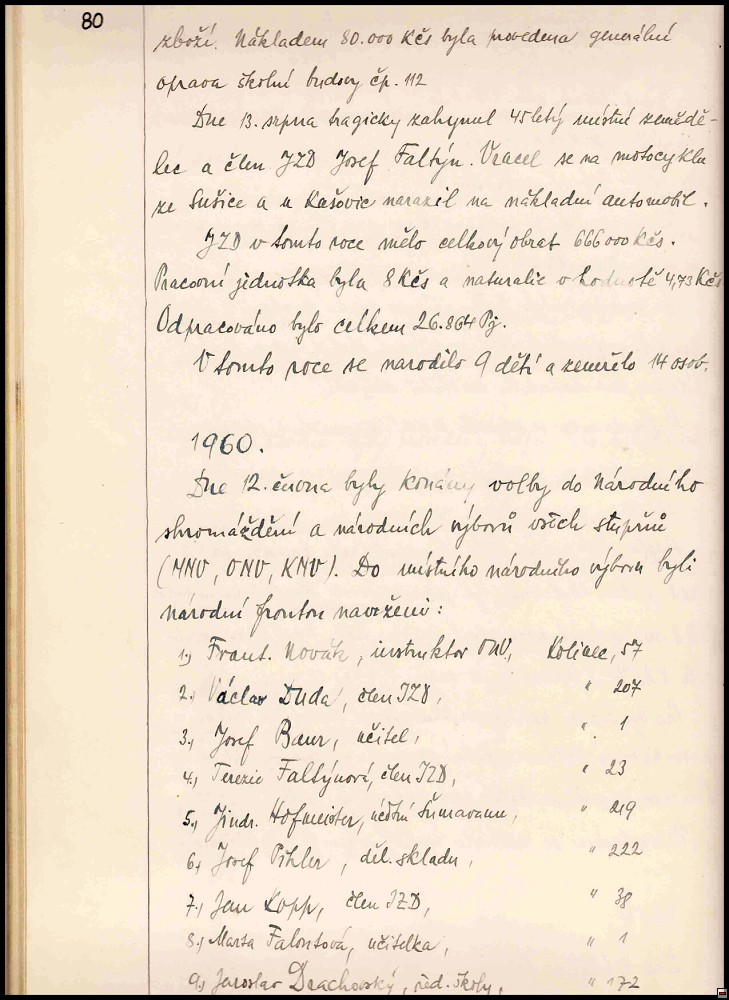 80
zboží. Nákladem 80.000 Kčs byla provedena generální
oprava školní budovy čp. 112
Dne 13. srpna tragicky zahynul 45letý místní zeměděl-
lec a člen JZD Josef Faltýn. Vracel se na motocyklu
ze Sušice a u Kašovic narazil na nákladní automobil.
JZD v tomto roce mělo celkový obrat 666000 Kčs.
Pracovní jednotka byla 8 Kčs a naturalie v hodnotě 4,73 Kčs
Odpracováno bylo celkem 26.864 Pj.
V tomto roce se narodilo 9 dětí a zemřelo 14 osob.
1960.
Dne 12. června byly konány volby do Národního
shromáždění a národních výborů všech stupňů
(MNV, ONV, KNV). Do místního národního výboru byli
národní frontou navrženi:
1.) Frant. Novák, instruktor ONV, Kolinec, 57
2.) Václav Duda, člen JZD, " 207
3.) Josef Baur, učitel, " 1
4.) Terezie Faltýnová, člen JZD, " 23
5.) Jindr. Hofmeister, účetní Šumavanu, " 219
6.) Josef Pihler, děl. skladu, " 222
7.) Jan Kopp, člen JZD, " 38
8.) Marta Falontová, učitelka, " 1
9.) Jaroslav Drachovský, řed. školy, " 172